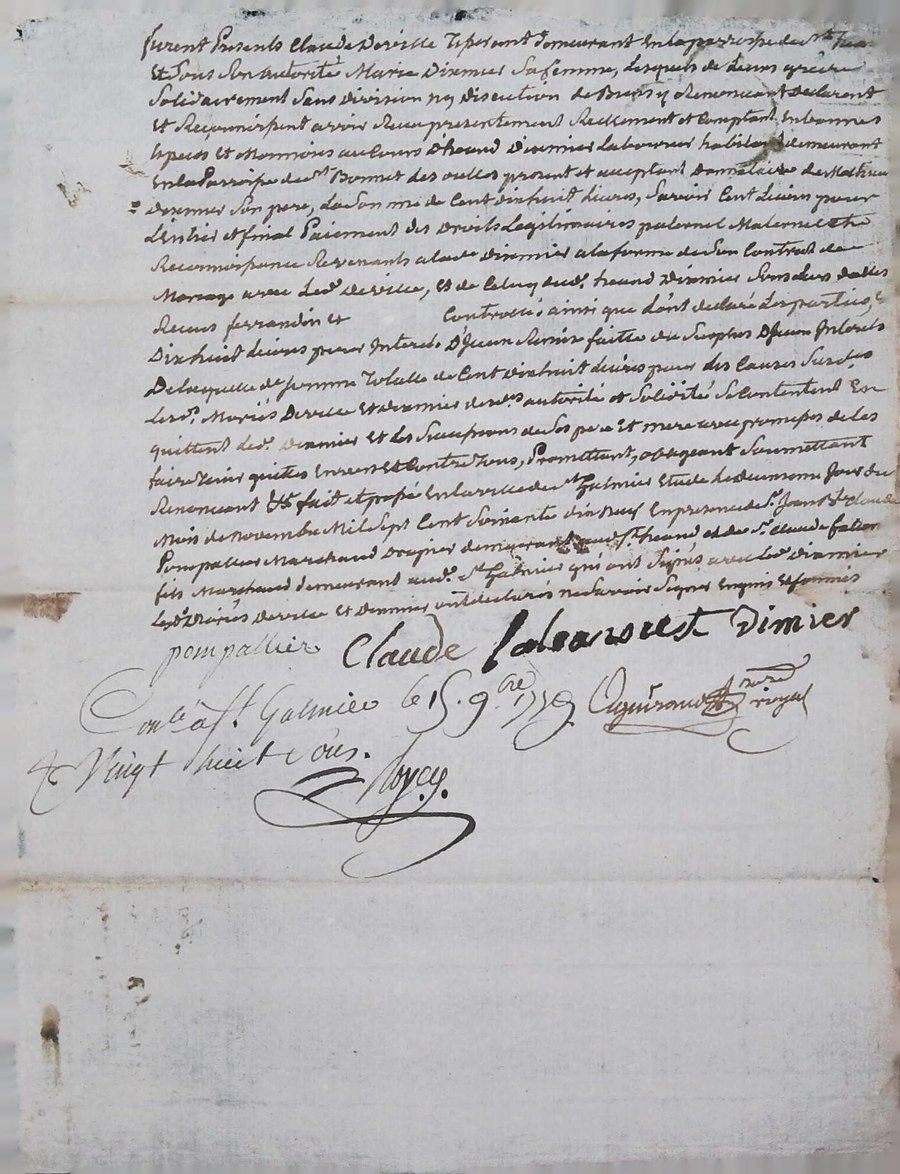 furent Presents Claude Deville Tisserant demeurant en la parroisse de St
Et sous son autorité Marie Dixmier sa femme, lesquels de leurs gré
solidairement sans division ny discution de Biens y Renoncant declarent
Et Reconnoissent avoir Receu presentement Reellement et Comptant en bonnes
Especes et Monnoies au Cours heand Dixmier Laboureur habitant demeurant
En la Parroisse de St Bonnet des oulles present et acceptant Donnataire de Mathieu
Dixmier Son pere, La Somme de Cent dixhuit livres, Savoir Cent Livres pour
L'entier et final Paiement des Droits Legitimaires paternel Maternel Et de
Reconnoissance Revenants a lade Dixmier a la forme de Son Contract de
Mariage avec Led. Deville, Et de Celuy dud. heand Dixmier
Receus ferrandin et Controllés ainsi que l'ont declaré Les parties, Et
Dixhuit Livres pour Interets D'iceux
De laquelle de Somme Totalle de Cent Dixhuit Livres pour les Causes Susdes
Lesd. Mariés Deville Et Dixmier desdes autorité et Solidité Se Contentent En
quittent Led. Dixmier Et les Successions de Ses pere Et mere avec promesses de les
faire Tenir quittes Envers Et Contre Tous, Promettant, obligeant Soumettant
Renoncant &c fait et passé En la ville de St Galmier Etude Le deuxieme Jour du
Mois de Novembre Mil Sept Cent Soixante dix neuf En presence de Sr. Jean Bte Claude
Pompallier Marchand Drapier demeurant aud. St. heand et de Sr. Claude
fils Marchand demeurant aud. St Galmier qui ont Signés avec led. Dixmier
Lesd. Mariés Deville Et Dixmier ont declarés ne Savoir Signer Enquis Et Sommés
pompallier Claude Dimier
Conlé a St. Galmier le 15. 9bre 1779 royal
Vingt huit sous.